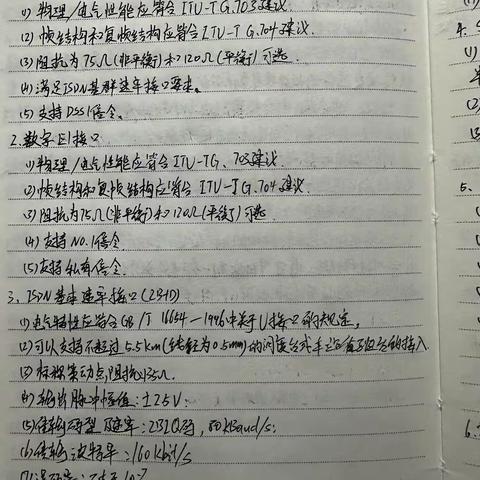 (1) 物理/电气性能应符合 ITU-T G.703建议.
(2) 帧结构和复帧结构应符合 ITU-T G.704建议.
(3) 阻抗为75Ω(非平衡)和120Ω(平衡)可选
(4) 满足ISDN基群速率接口要求。
(5) 支持DSS1信令。
2. 数字E1接口
(1) 物理/电气性能应符合 ITU-TG.703建议
(2) 帧结构和复帧结构应符合 ITU-TG.704建议
(3) 阻抗为75Ω(非平衡)和120Ω(平衡)可选
(4) 支持NO.1信令
(5) 支持私有信令.
3. ISDN基本速率接口(2B+D)
(1) 电气特性应符合GB/T 16654—1996中关于U接口的规定,
(2) 可以支持不超过5.5km(线径为0.5mm)的间接台或半
(3) 标称 阻抗135Ω.
(4) 输出脉冲幅值: ±2.5V.
(5) 传输码型及速率: 2B1Q码, 80kBaud/s;
(6) 传输波特率: 160kbit/s
4.
(1)
(2)
(3)
5.
6.